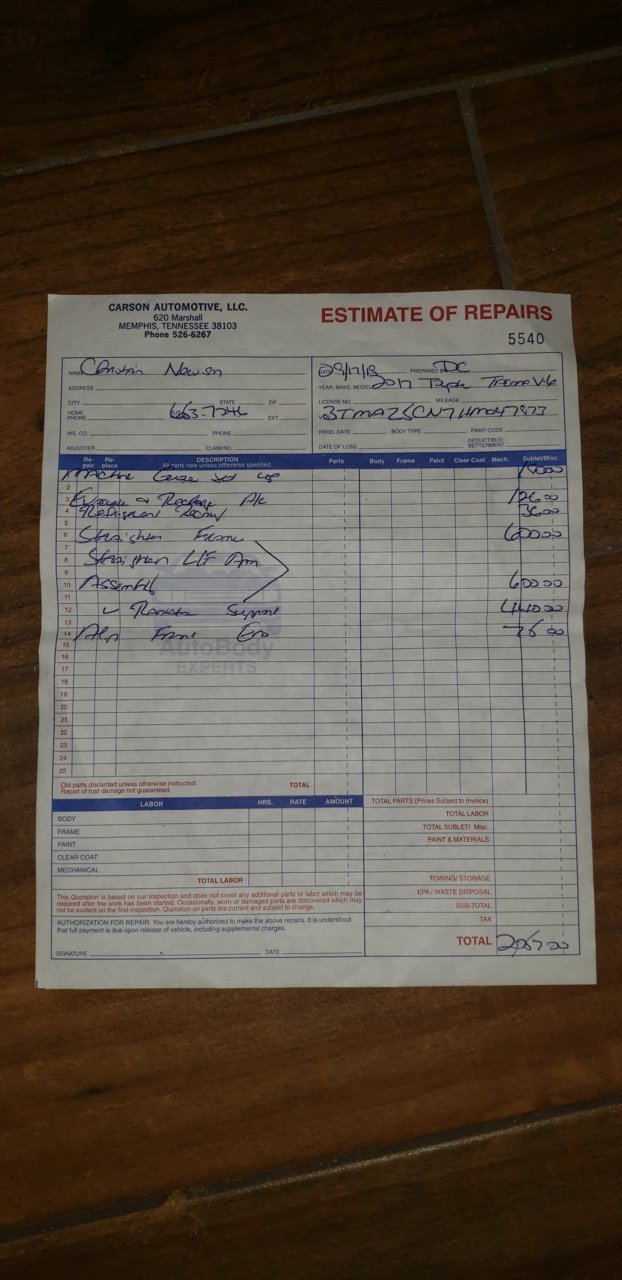 CARSON AUTOMOTIVE, LLC.
620 Marshall
MEMPHIS, TENNESSEE 38103
Phone 526-6267
ESTIMATE OF REPAIRS
5540
NAME
DATE 09/17/18 PREPARED BY DC
ADDRESS
YEAR, MAKE, MODEL 2017 V6
CITY STATE ZIP
LICENSE NO. MILEAGE
HOME PHONE BUS. EXT.
INS. CO. PHONE
PROD. DATE BODY TYPE PAINT CODE
ADJUSTER CLAIM NO.
DATE OF LOSS DEDUCTIBLE/ BETTERMENT
Re- pair Re- place DESCRIPTION All parts new unless otherwise specified. Parts Body Frame Paint Clear Cost Mech. Sublet/Misc.
1 set up
2
3 A/c 126 00
4 Refrigerant 36 00
5
6 Straighten Frame 600 00
7
8 Straighten L/F
9
10 Assembly 600 00
11
12 Support 440 00
13
14 Front End 75 00
15
16
17
18
19
20
21
22
23
24
25
AutoBody
EXPERTS
Old parts discarded unless otherwise instructed.
Repair of rust damage not guaranteed.
TOTAL
LABOR HRS. RATE AMOUNT
TOTAL PARTS (Prices Subject to Invoice)
BODY
TOTAL LABOR
FRAME
TOTAL SUBLET/ Misc.
PAINT
PAINT & MATERIALS
CLEAR COAT
MECHANICAL
TOTAL LABOR
TOWING/ STORAGE
EPA / WASTE DISPOSAL
SUB-TOTAL
TAX
TOTAL
This Quotation is based on our inspection and does not cover any additional parts or labor which may be
required after the work has been started. Occasionally, worn or damaged parts are discovered which may
not be evident on the first inspection. Quotation on parts are current and subject to change.
AUTHORIZATION FOR REPAIR. You are hereby authorized to make the above repairs. It is understood
that full payment is due upon release of vehicle, including supplemental charges.
SIGNATURE DATE